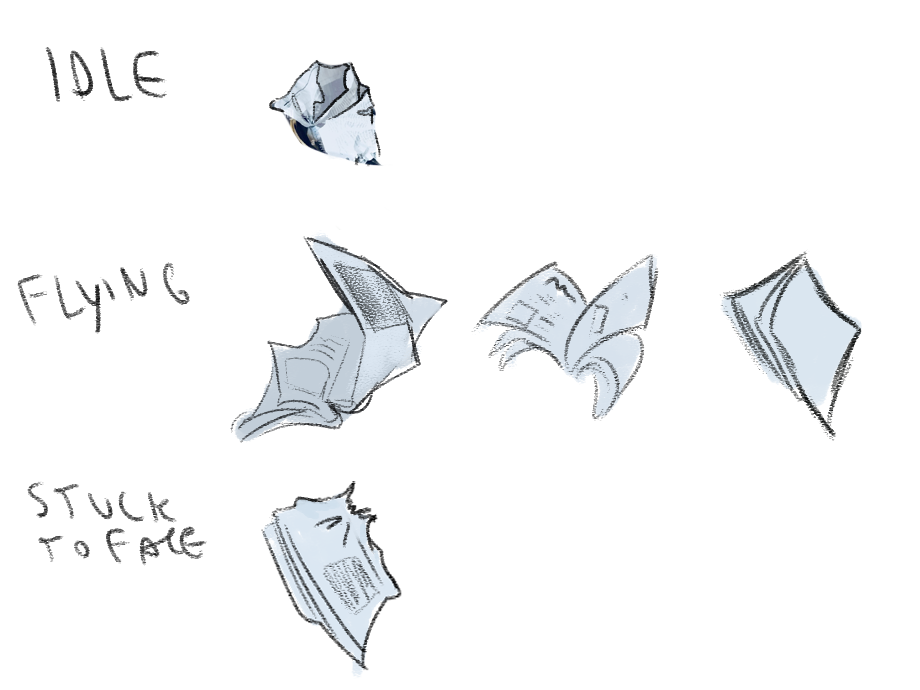 IDLE
FLYING
STUCK
TO FACE